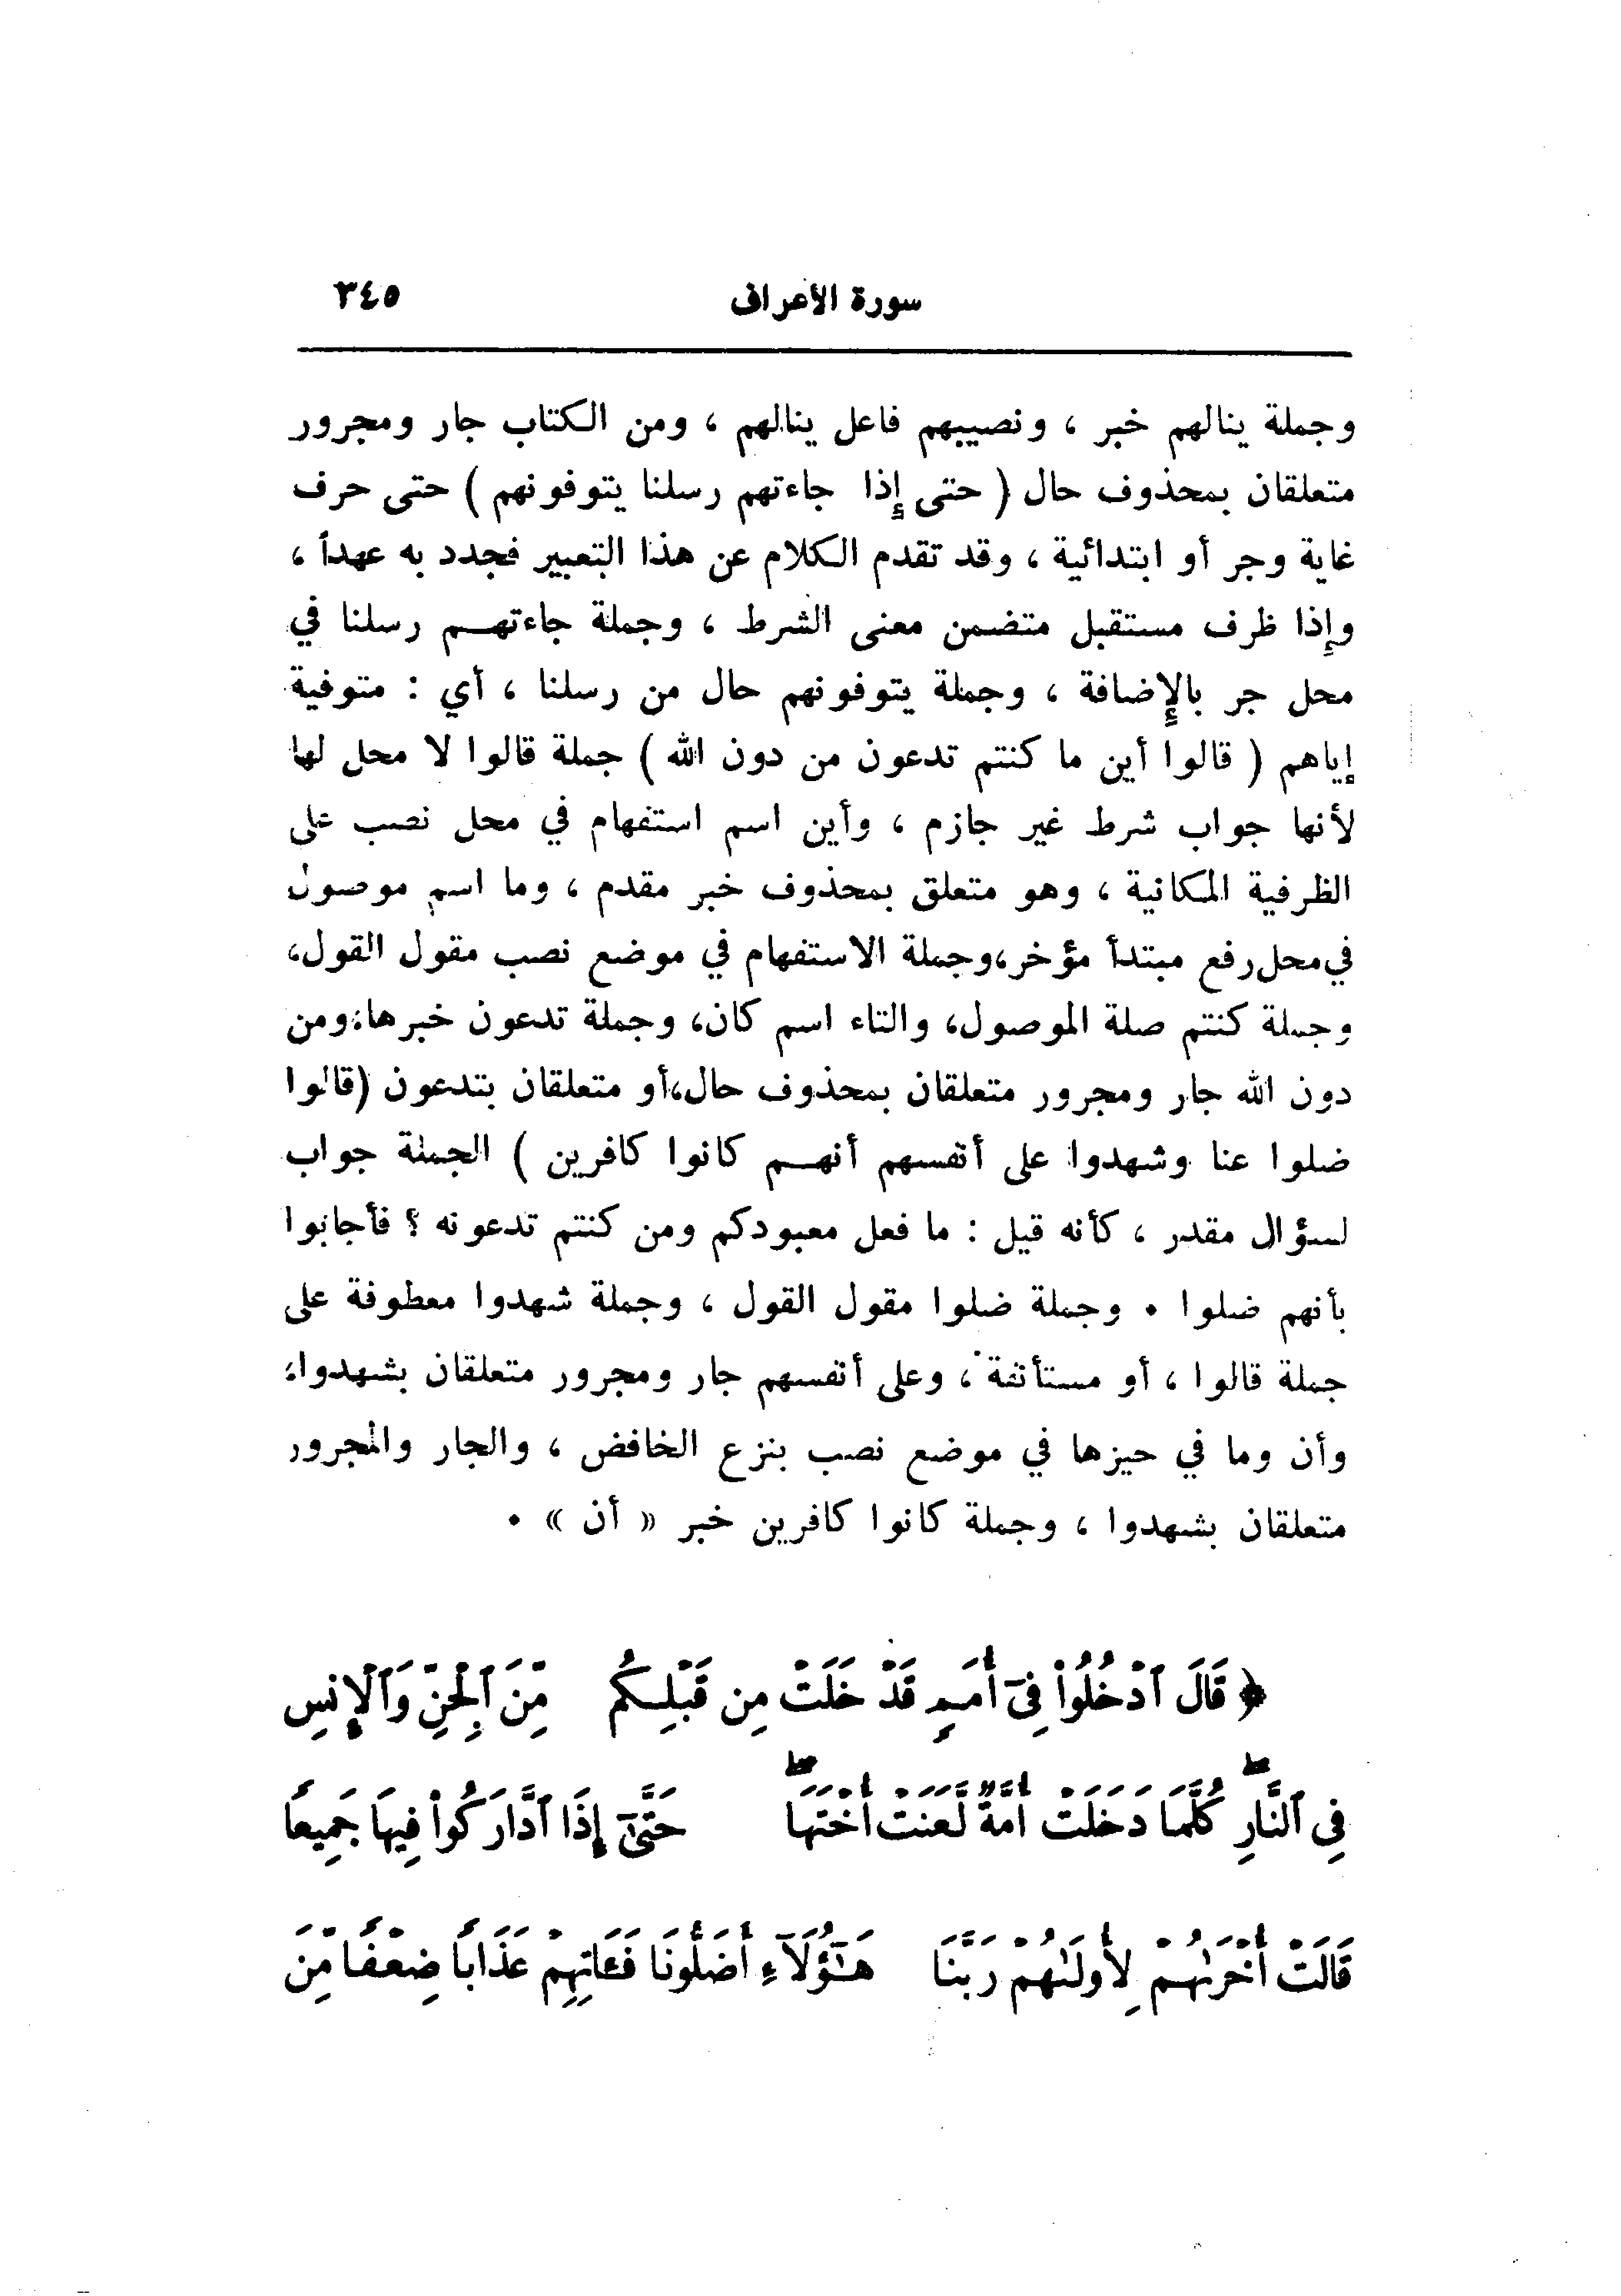 سورة الأعراف ٣٤٥
وجملة ينالهم خبر ، ونصيبهم فاعل ينالهم ، ومن الكتاب جار ومجرور
متعلقان بمحذوف حال ( حتى إذا جاءتهم رسلنا يتوفونهم ) حتى حرف
غاية وجر أو ابتدائية ، وقد تقدم الكلام عن هذا التعبير فجدد به عهداً ،
وإذا ظرف مستقبل متضمن معنى الشرط ، وجملة جاءتهم رسلنا في
محل جر بالإضافة ، وجملة يتوفونهم حال من رسلنا ، أي : متوفية
إياهم ( قالوا أين ما كنتم تدعون من دون الله ) جملة قالوا لا محل لها
لأنها جواب شرط غير جازم ، وأين اسم استفهام في محل نصب على
الظرفية المكانية ، وهو متعلق بمحذوف خبر مقدم ، وما اسم موصول
في محل رفع مبتدأ مؤخر، وجملة الاستفهام في موضع نصب مقول القول،
وجملة كنتم صلة الموصول، والتاء اسم كان، وجملة تدعون خبرها، ومن
دون الله جار ومجرور متعلقان بمحذوف حال، أو متعلقان بتدعون (قالوا
ضلوا عنا وشهدوا على أنفسهم أنهم كانوا كافرين ) الجملة جواب
لسؤال مقدر ، كأنه قيل : ما فعل معبودكم ومن كنتم تدعونه ؟ فأجابوا
بأنهم ضلوا ٠ وجملة ضلوا مقول القول ، وجملة شهدوا معطوفة على
جملة قالوا ، أو مستأنفة ، وعلى أنفسهم جار ومجرور متعلقان بشهدوا،
وأن وما في حيزها في موضع نصب بنزع الخافض ، والجار والمجرور
متعلقان بشهدوا ، وجملة كانوا كافرين خبر « أن » ٠
﴿ قَالَ ٱدْخُلُوا۟ فِىٓ أُمَمٍ قَدْ خَلَتْ مِن قَبْلِكُم مِّنَ ٱلْجِنِّ وَٱلْإِنسِ
فِى ٱلنَّارِ ۖ كُلَّمَا دَخَلَتْ أُمَّةٌ لَّعَنَتْ أُخْتَهَا ۖ حَتَّىٰٓ إِذَا ٱدَّارَكُوا۟ فِيهَا جَمِيعًا
قَالَتْ أُخْرَىٰهُمْ لِأُولَىٰهُمْ رَبَّنَا هَٰٓؤُلَآءِ أَضَلُّونَا فَـَٔاتِهِمْ عَذَابًا ضِعْفًا مِّنَ